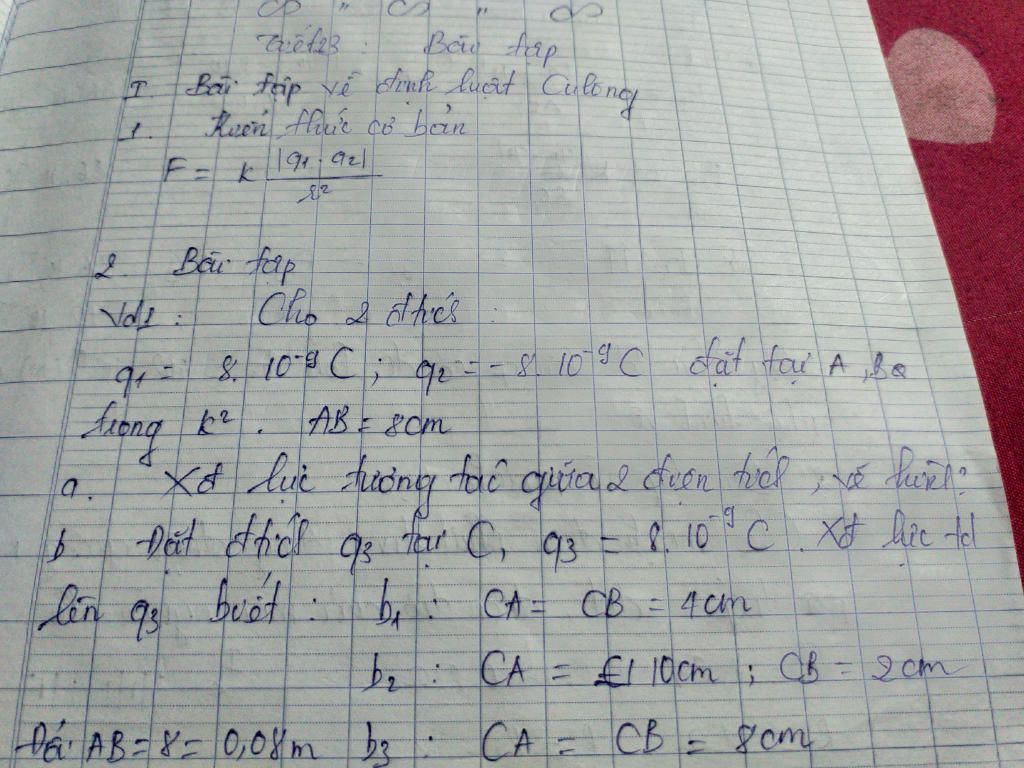 Tiết 23 : Bài tập
I Bài tập về định luật Culông
1. Kiến thức cơ bản
F = k |q1 . q2| / r²
2. Bài tập
Vd1 : Cho 2 đtích :
q1 = 8. 10⁻⁹ C ; q2 = - 8. 10⁻⁹ C đặt tại A, B
trong k² . AB = 8cm
a. Xđ lực tương tác giữa 2 điện tích , vẽ hình?
b. Đặt đtích q3 tại C, q3 = 8. 10⁻⁹ C . Xđ lực td
lên q3 biết : b1 : CA = CB = 4cm
b2 : CA = 10cm ; CB = 2cm
Đổi AB = 8 = 0,08m b3 : CA = CB = 8cm